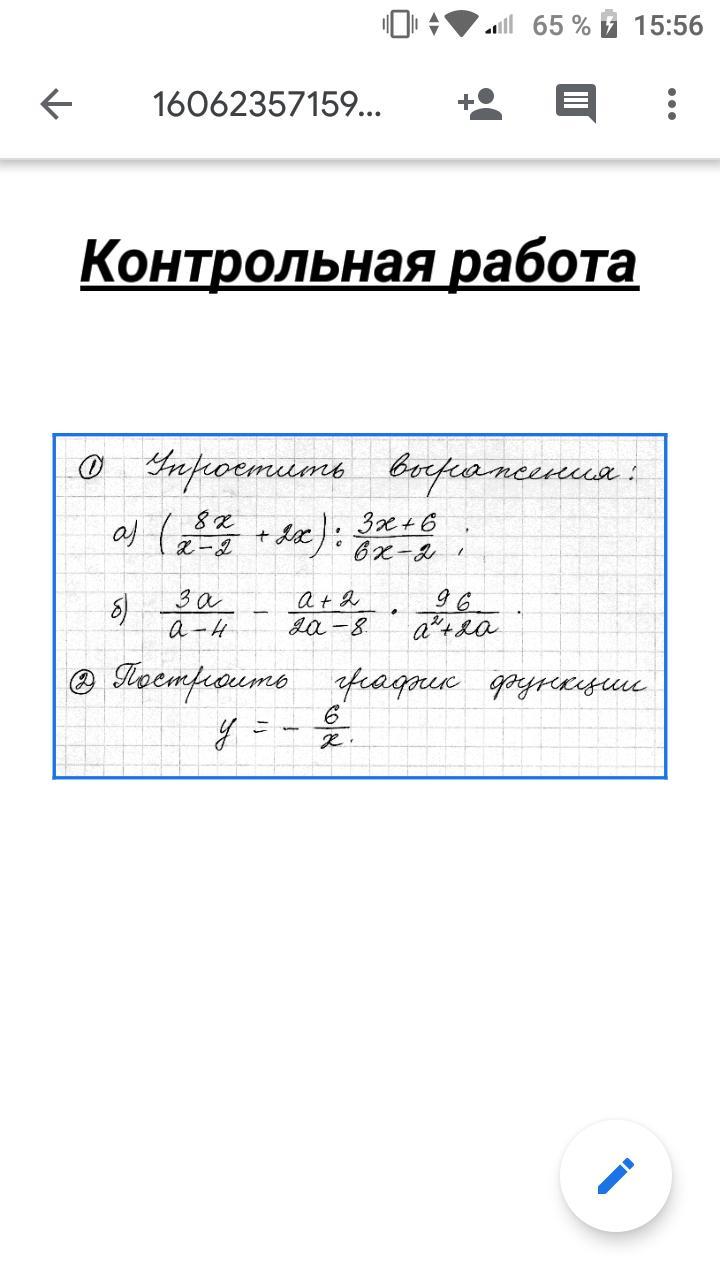 65 % 15:56
16062357159...
Контрольная работа
① Упростить выражения:
а) (8x/(x-2) + 2x) : (3x+6)/(6x-2) ;
б) 3a/(a-4) - (a+2)/(2a-8) · 96/(a²+2a) .
② Построить график функции
y = - 6/x.